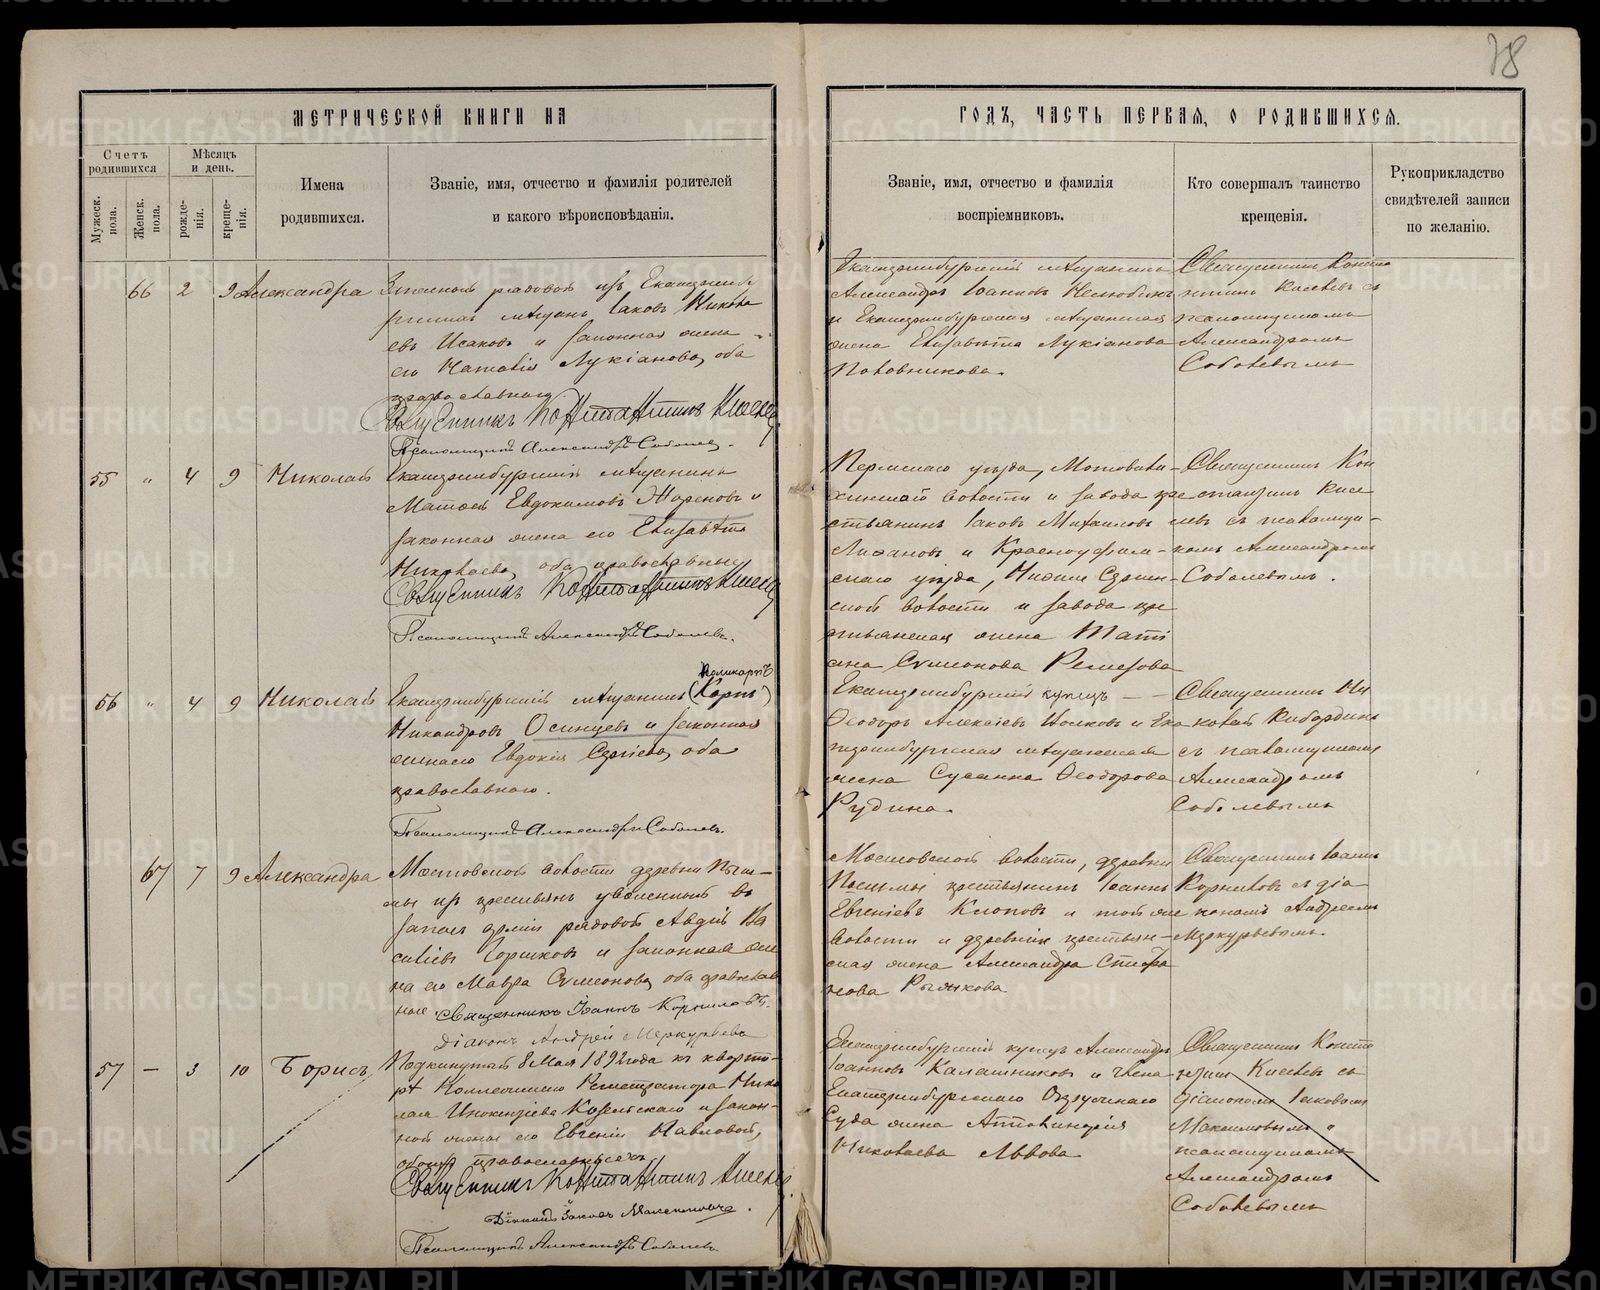 78
МЕТРИЧЕСКОЙ КНИГИ НА
ГОДЪ, ЧАСТЬ ПЕРВАЯ, О РОДИВШИХСЯ.
Счетъ родившихся
Мѣсяцъ и день.
Имена родившихся.
Званіе, имя, отчество и фамилія родителей
и какого вѣроисповѣданія.
Мужеск. пола.
Женск. пола.
рожденія.
крещенія.
Званіе, имя, отчество и фамилія
воспріемниковъ.
Кто совершалъ таинство
крещенія.
Рукоприкладство
свидѣтелей записи
по желанію.
66 2 9 Александра
рядовой изъ Екатеринбу
ргскихъ мѣщанъ Іаковъ
евъ Исаковъ и законная жена
его Наталія Лукіанова, оба
православнаго
Священникъ Константинъ
Псаломщикъ Александръ Соболевъ.
Екатеринбургскій мѣщанинъ
Александръ Іоанновъ
и Екатеринбургская мѣщанская
жена Елисавета Лукіанова
Половникова.
Священникъ Конста
нтинъ съ
псаломщикомъ
Александромъ
Соболевымъ
55 „ 4 9 Николай
Екатеринбургскій мѣщанинъ
Матѳей Евдокимовъ и
законная жена его Елисавета
Николаева, оба православные
Священникъ Константинъ
Псаломщикъ Александръ Соболевъ.
Пермскаго уѣзда, Мотовили-
хинской волости и завода кре
стьянинъ Іаковъ Михаиловъ
и Красноуфим-
скаго уѣзда, Нижне Сергин-
ской волости и завода кре
стьянская жена Тати
ана Симонова Ремезова
Священникъ Кон
стантинъ
съ псаломщи-
комъ Александромъ
Соболевымъ.
56 „ 4 9 Николай
Поликарпъ
Екатеринбургскій мѣщанинъ (Карпъ)
Никандровъ Осинцевъ и законная
жена его Евдокія Сергіева, оба
православнаго.
Псаломщикъ Александръ Соболевъ.
Екатеринбургскій купецъ — —
Ѳеодоръ Алексіевъ и Ека
теринбургская мѣщанская
жена Сусанна Ѳеодорова
Рудина.
Священникъ Ни
колай Кибардинъ
съ псаломщикомъ
Александромъ
Соболевымъ
67 7 9 Александра
Мостовской волости деревни Пыш-
мы изъ крестьянъ уволенный въ
запасъ арміи рядовой Авдій Ва
силіевъ Горшковъ и законная же
на его Мавра Симонова, оба православ
ные. Священникъ Іоаннъ Корниловъ.
Діаконъ Андрей Меркурьевъ
Мостовской волости, деревни
Пышмы крестьянинъ Іоаннъ
Евгеніевъ и той же
волости и деревни крестьян-
ская жена Александра Стефа
нова
Священникъ Іоаннъ
Корниловъ съ діа
кономъ Андреемъ
Меркурьевымъ.
57 — 3 10 Борисъ
Подкинутый 8 Мая 1892 года къ кварти-
рѣ Коллежскаго Регистратора Нико
лая Инокентіева и закон-
ной жены его Евгеніи Павловой,
обоихъ православныхъ
Священникъ Константинъ
Діаконъ Іаковъ Максимовъ.
Псаломщикъ Александръ Соболевъ
Екатеринбургскій купецъ Александръ
Іоанновъ Калашниковъ и члена
Екатеринбургскаго Окружнаго
Суда жена Апполинарія
Николаева Львова
Священникъ Конста
нтинъ съ
діакономъ Іаковомъ
Максимовымъ и
псаломщикомъ
Александромъ
Соболевымъ
METRIKI.GASO-URAL.RU